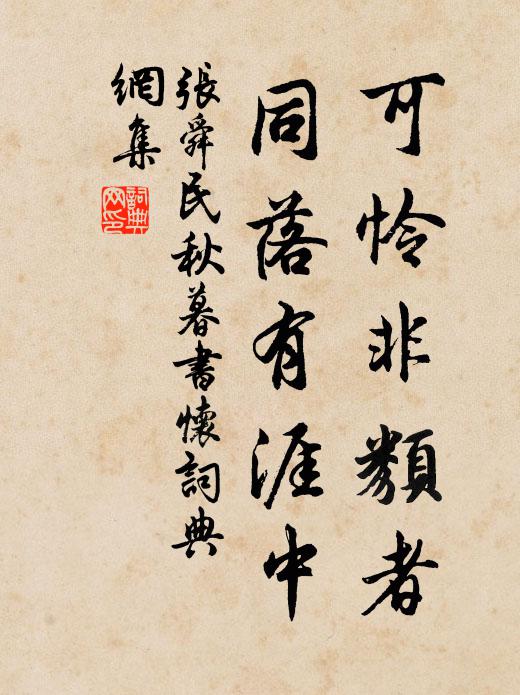 可怜非類者
同落有涯中
張舜民秋暮書懷詞典
網集
詞典網印